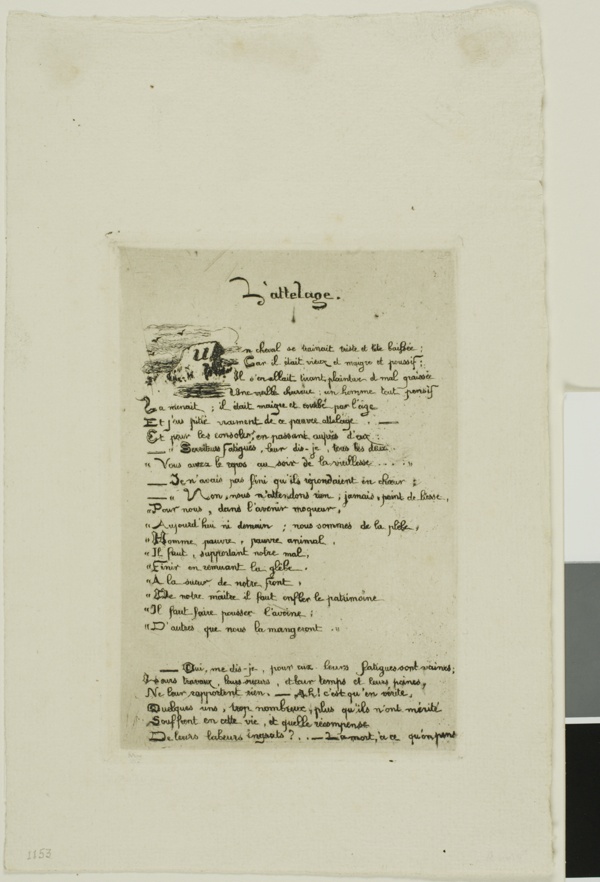 L'attelage.
Un cheval se trainait triste et tête baissée ;
Car il était vieux et maigre et poussif ;
Il s'en allait tirant, plaintive et mal graissée
Une vieille charrue ; un homme tout pensif
La menait ; il était maigre et courbé par l'âge
Et j'us pitié vraiment de ce pauvre attelage . —
Et pour les consoler, en passant auprès d'eux :
— " Serviteurs fatigués, leur dis-je, tous les deux
" Vous aurez le repos au soir de la vieillesse .... "
— Je n'avais pas fini qu'ils répondaient en chœur :
— " Non, nous n'attendons rien ; jamais, point de liesse,
" Pour nous, dans l'avenir moqueur,
" Aujourd'hui ni demain ; nous sommes de la plèbe,
" Homme pauvre, pauvre animal,
" Il faut, supportant notre mal,
" Finir en remuant la glèbe .
" A la sueur de notre front ,
" De notre maître il faut enfler le patrimoine
" Il faut faire pousser l'avoine ;
" D'autres que nous la mangeront . "
— Oui, me dis-je, pour eux leurs fatigues sont vaines ;
Leurs travaux, leurs sueurs, et leur temps et leurs peines,
Ne leur rapportent rien. — Ah ! c'est qu'en vérité,
Quelques uns, trop nombreux, plus qu'ils n'ont mérité
Souffrent en cette vie, et quelle récompense
De leurs labeurs ingrats ? .. — La mort, à ce qu'on pense
1153